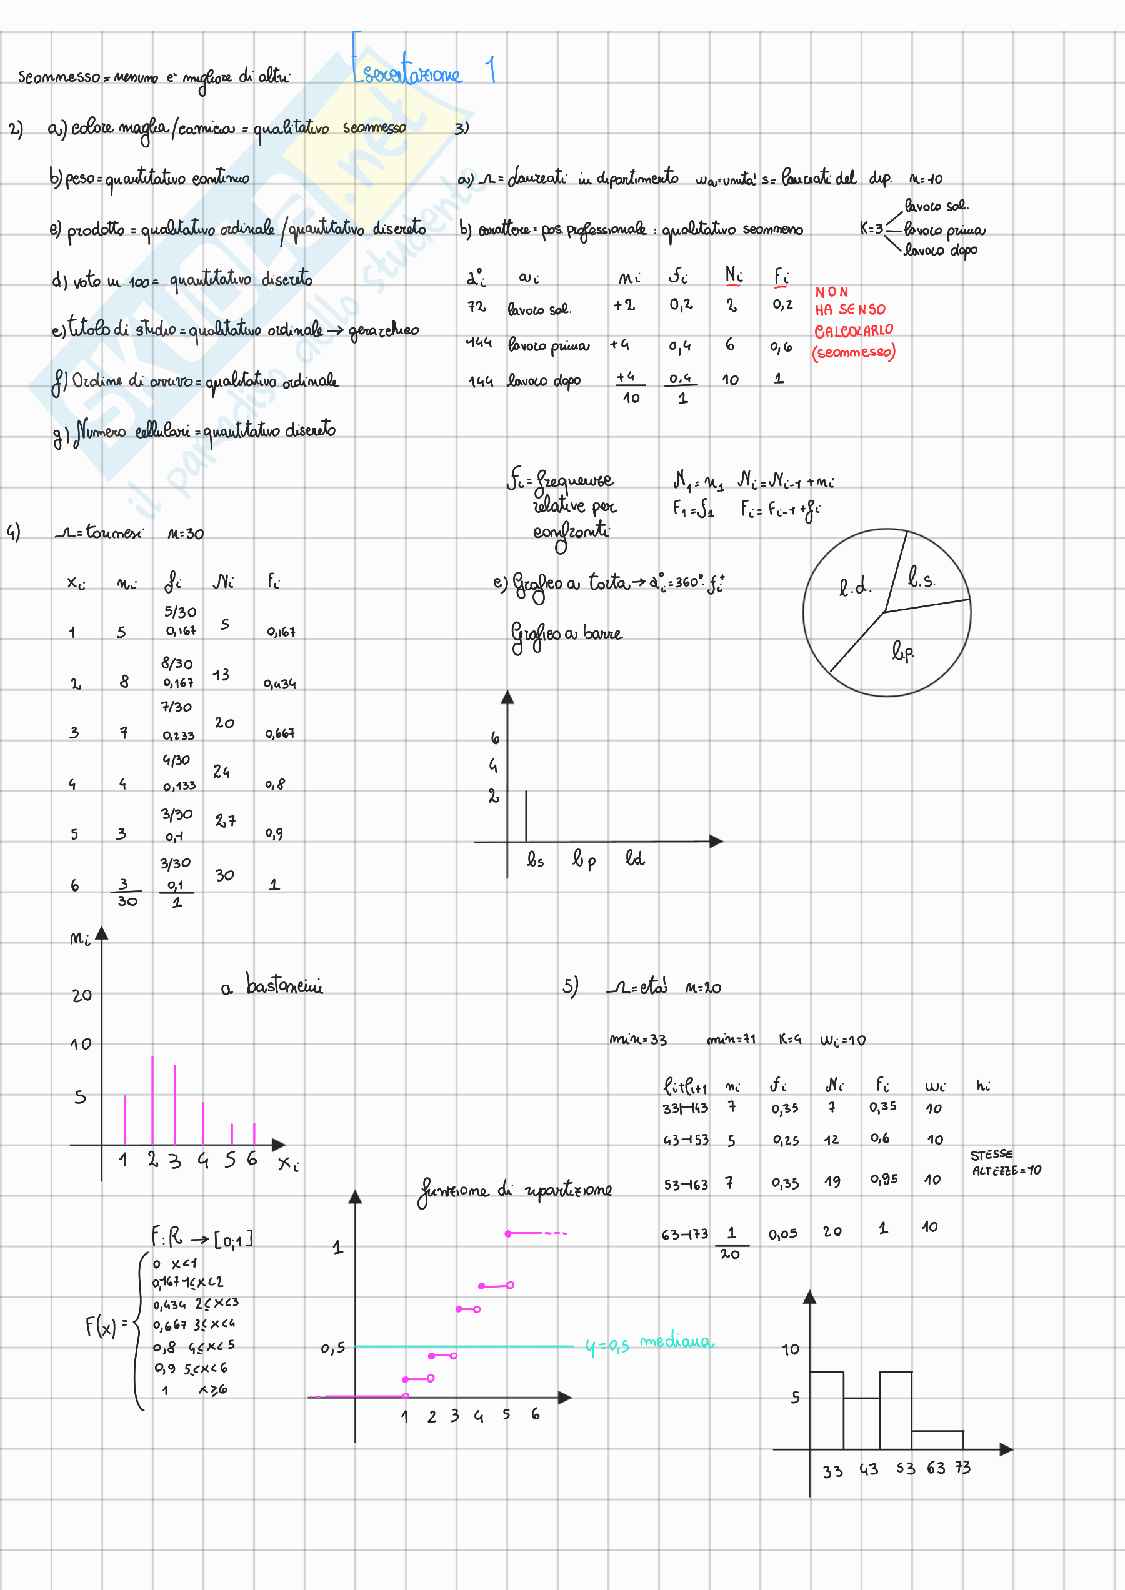 Esercitazione 1
sconnesso = nessuno è migliore di altri
2) a) colore maglia/camicia = qualitativo sconnesso
b) peso = quantitativo continuo
c) prodotto = qualitativo ordinale / quantitativo discreto
d) voto in 100 = quantitativo discreto
e) titolo di studio = qualitativo ordinale → gerarchico
f) Ordine di arrivo = qualitativo ordinale
g) Numero cellulari = quantitativo discreto
3)
a) Ω = laureati in dipartimento ωa = unità s = laureati del dip. n = 10
b) carattere = pos professionale : qualitativo sconnesso K=3
lavoro sol.
lavoro prima
lavoro dopo
a°i ai ni fi Ni Fi
72 lavoro sol. +2 0,2 2 0,2
144 lavoro prima +4 0,4 6 0,6
144 lavoro dopo +4 0,4 10 1
10 1
NON
HA SENSO
CALCOLARLO
(sconnesso)
fi = frequenze
relative per
confronti
N1 = n1 Ni = Ni-1 + ni
F1 = f1 Fi = Fi-1 + fi
c) Grafico a torta → a°i = 360° · fi
Grafico a barre
l.d. l.s.
l.p.
6
4
2
ls lp ld
4) Ω = tornesi n = 30
xi ni fi Ni Fi
5/30
1 5 0,167 5 0,167
8/30
2 8 0,167 13 0,434
7/30
3 7 0,233 20 0,667
4/30
4 4 0,133 24 0,8
3/30
5 3 0,1 27 0,9
3/30
6 3 0,1 30 1
30 1
ni
a bastoncini
20
10
5
1 2 3 4 5 6 xi
funzione di ripartizione
F: R → [0,1]
F(x) =
0 x<1
0,167 1≤x<2
0,434 2≤x<3
0,667 3≤x<4
0,8 4≤x<5
0,9 5≤x<6
1 x≥6
1
0,5
y=0,5 mediana
1 2 3 4 5 6
5) Ω = età n = 20
min = 33 min = 71 K = 4 wi = 10
li⊣li+1 ni fi Ni Fi wi hi
33⊢⊣43 7 0,35 7 0,35 10
43⊣53 5 0,25 12 0,6 10
53⊣63 7 0,35 19 0,95 10
63⊣73 1 0,05 20 1 10
20
STESSE
ALTEZZE = 10
10
5
33 43 53 63 73
SKUOLA.net
il paradiso dello studente